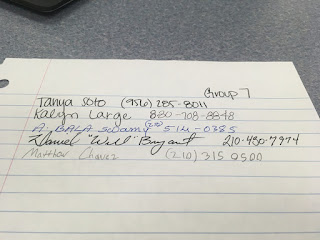 Group 7
Tanya Soto (956) 285-8011
Kalyn Large 830-708-8848
A. BALA Swamy (210) 514-0385
Daniel "Will" Bryant 210-430-7974
Matthew Chavez (210) 315 0500